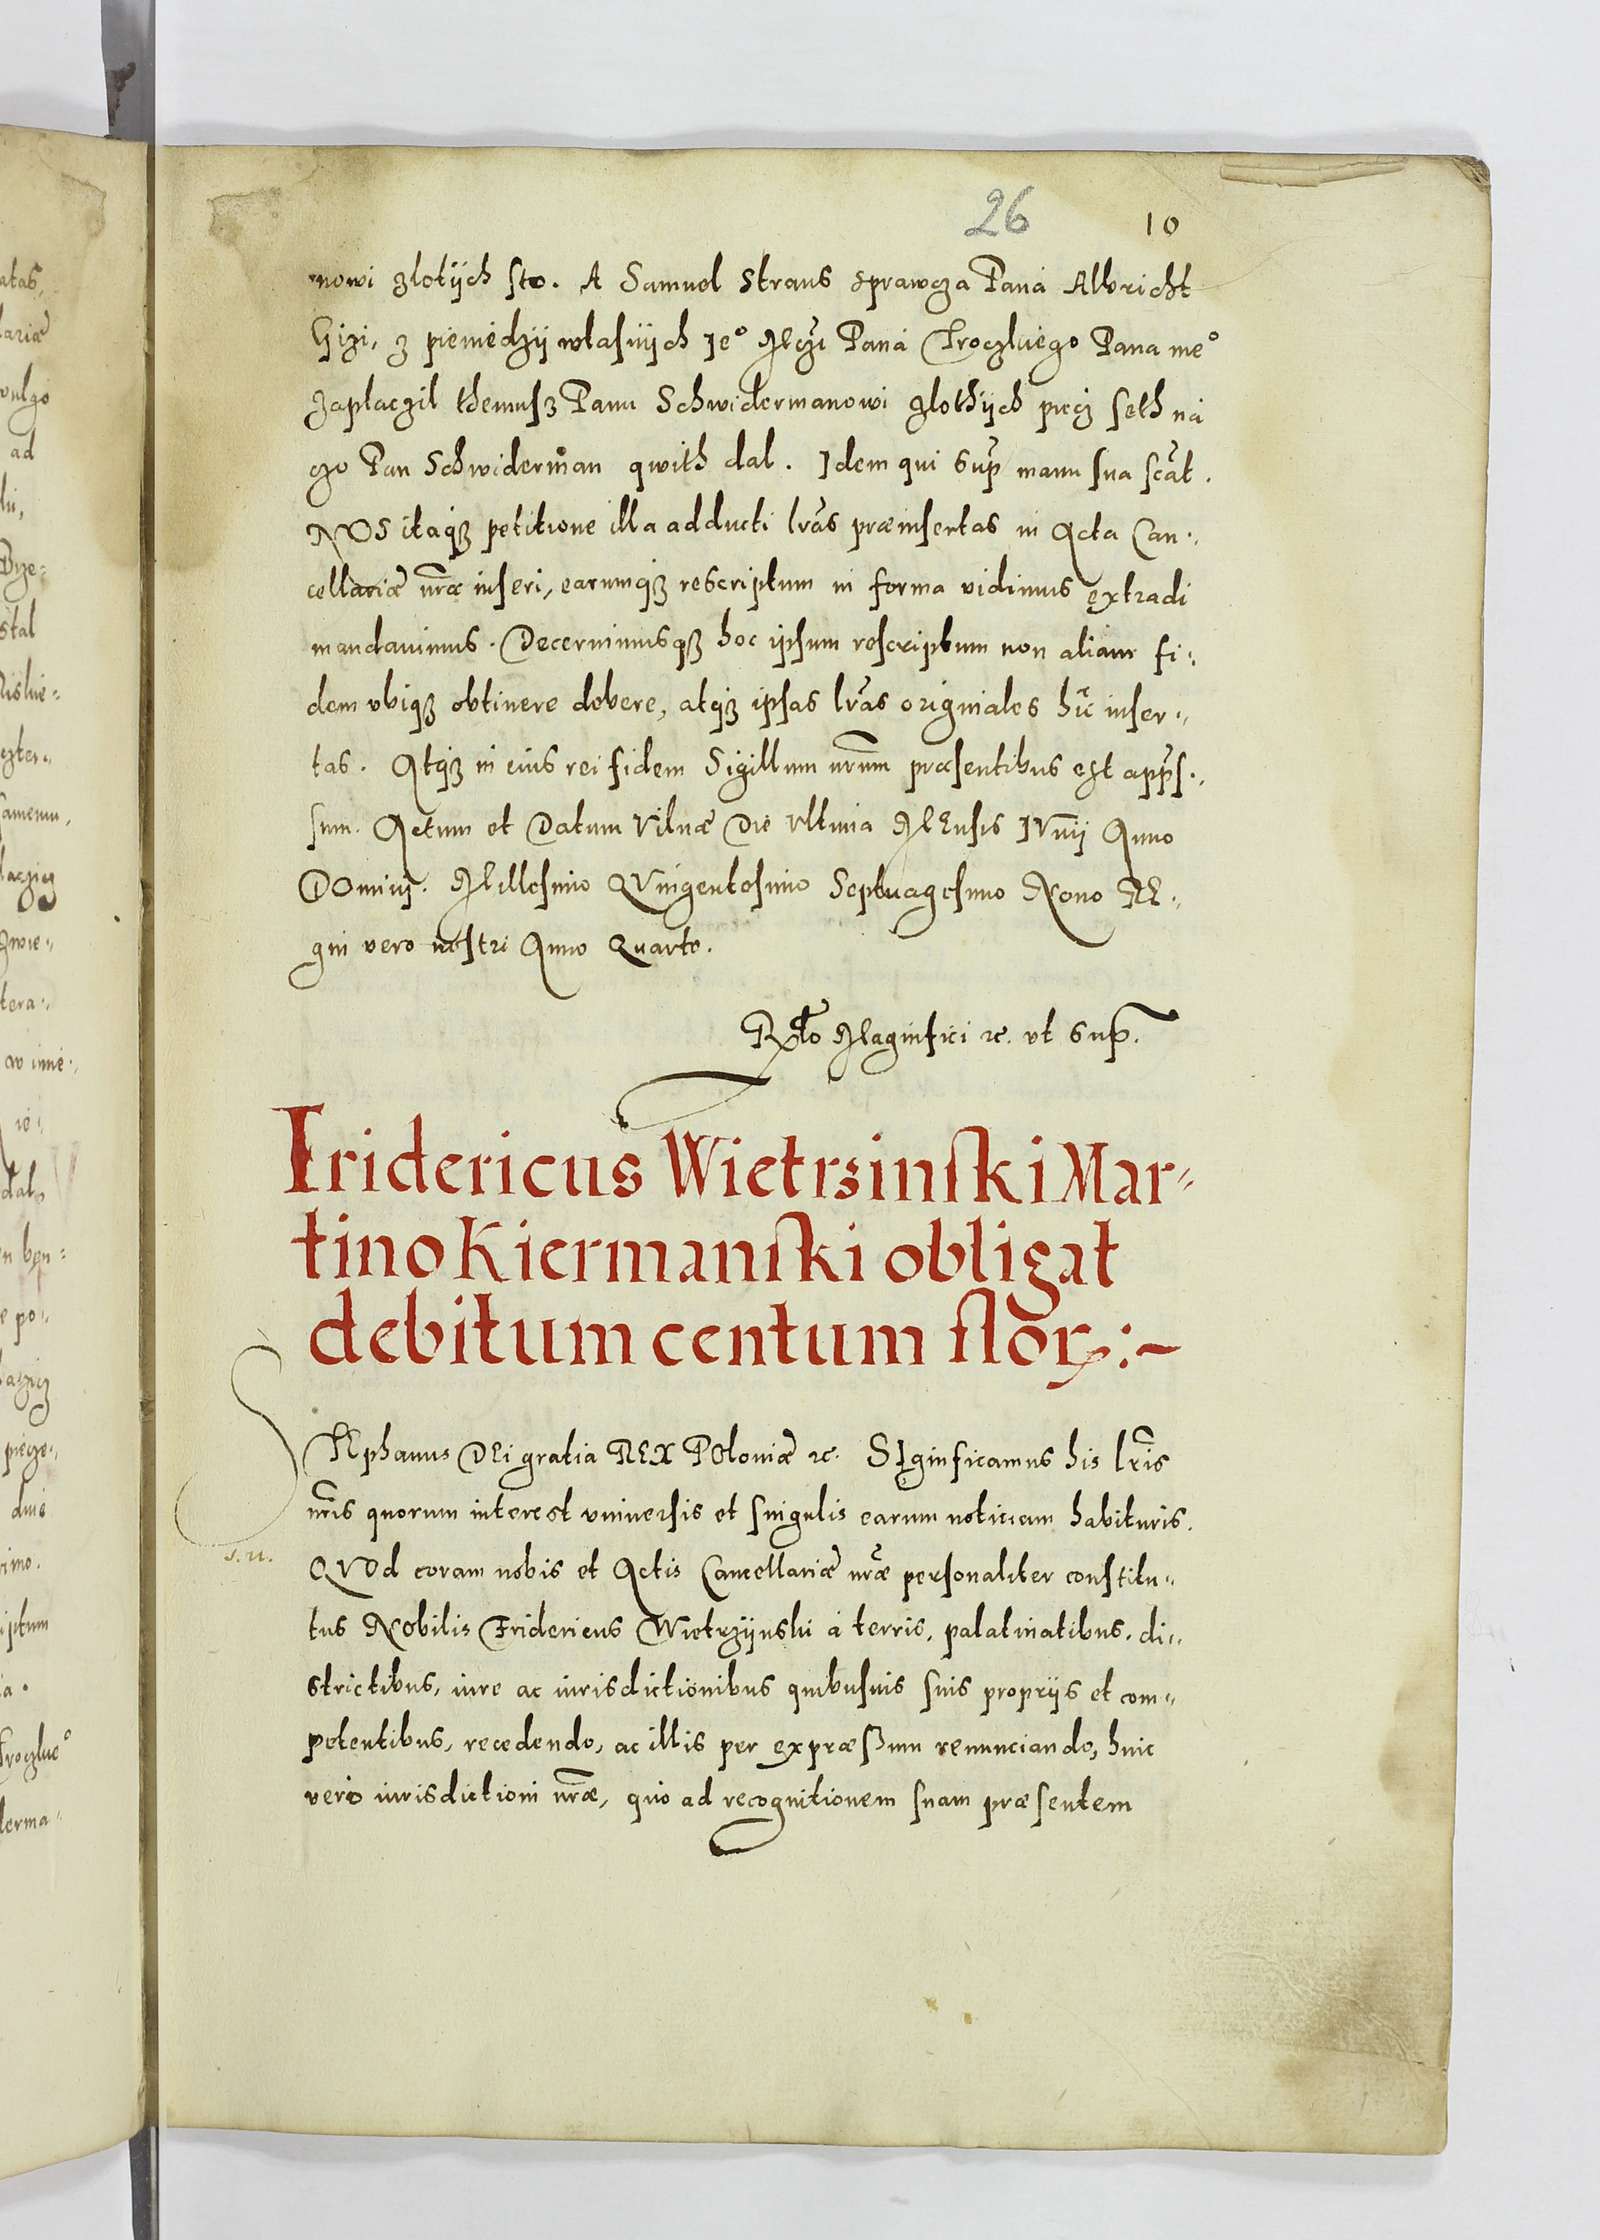 26
10
nowi zlotijch sto. A Samuel Straus sprawcza Pana Albricht
Gizi, z pieniedzij wlasnijch Ieº Mczi Pana Troczkiego Pana meº
zaplaczil themusz Panu Schwidermanowi zlothijch piecz seth na
czo Pan Schwiderman qwith dal. Idem qui sup manu sua scãt.
NOS itaqꝫ petitione illa adducti lrãs præinsertas in Acta Can-
cellariæ nrãe inseri, earumqꝫ rescriptum in forma vidimus extradi
mandavimus. Decernimusqꝫ hoc ipsum rescriptum non aliam fi-
dem vbiqꝫ obtinere debere, atqꝫ ipsas lrãs originales hic inser-
tas. Atqꝫ in eius rei fidem Sigillum nrũm præsentibus est apps-
sum. Actum et Datum Vilnæ Die Vltima MEnsis IVnij Anno
DOmini. Millesimo QVingentesimo Septuagesimo Nono RE-
gni vero nostri Anno Quarto.
Rlto Magnifici ꝛc. vt sup.
Fridericus Wietrsinski Mar-
tino Kiermanski obligat
debitum centum flor:-
STEphanus DEi gratia REX POloniæ ꝛc. SIgnificamus his lrĩs
nrĩs quorum interest vniversis et singulis earum noticiam habituris.
s. n.
QVOd coram nobis et Actis Cancellariæ nrãe personaliter constitu-
tus Nobilis Fridericus Wietrzijnski à terris, palatinatibus, di-
strictibus, iure ac iurisdictionibus quibusvis suis proprijs et com-
petentibus, recedendo, ac illis per expræßum renunciando, huic
vero iurisdictioni nrãe, quo ad recognitionem suam præsentem